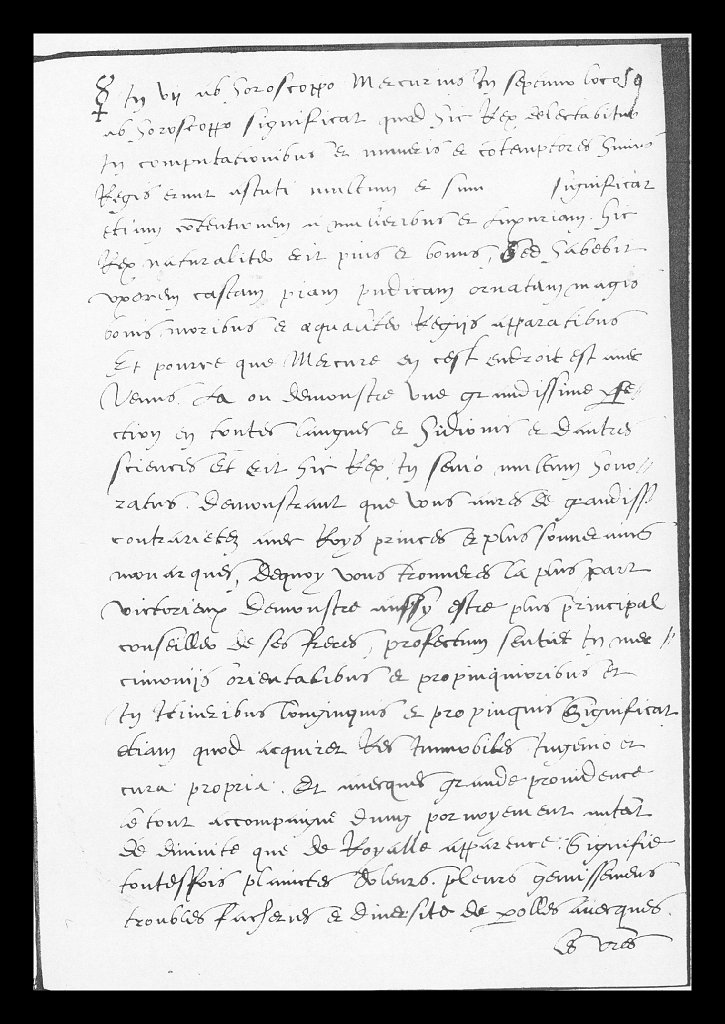 ☿ In vij ab horoscoppo Mercurius In septimo loco
ab horoscoppo significat quod hic Rex delectabitur
In computationibus et numeris et cotemptores huius
Regis erunt astuti multum et sim significat
etiam cõtentionem a mulieribus et Luxuriam. hic
Rex naturaliter erit pius et bonus, Sed habebit
vxorem castam piam pudicam ornatam magis
bonis moribus et æqualiter Regijs apparatibus
Et pource que Mercure en cest endroit est avec
Venus. La ou demonstre vne grandissime perfe-
ction en toutes langues et Sidiomes et dautres
sciences Et erit hic Rex In senio multum hono-
ratus. Demonstrant que vous aures de grandiss
contrarietez avec Roys princes et plus souverains
monarques, Dequoy vous trouveres la plus part
victorieux Demonstre aussy estre plus principal
conseiller de ses freres, profectum sentiet In
cimonijs orientalibus et propinquioribus et
In Itineribus longinquis et propinquis Significat
etiam quod acquiret Res Immobiles Ingenio et
cura propria. Et avecques grande providence
e tout accompaigne dung pornoyement autãt
de divinite que de Royalle apparence. Signifie
toutesfois plainctes doleurs. pleurs gemissemens
troubles facheries et diversite de parolles avecques.
les vr̃es